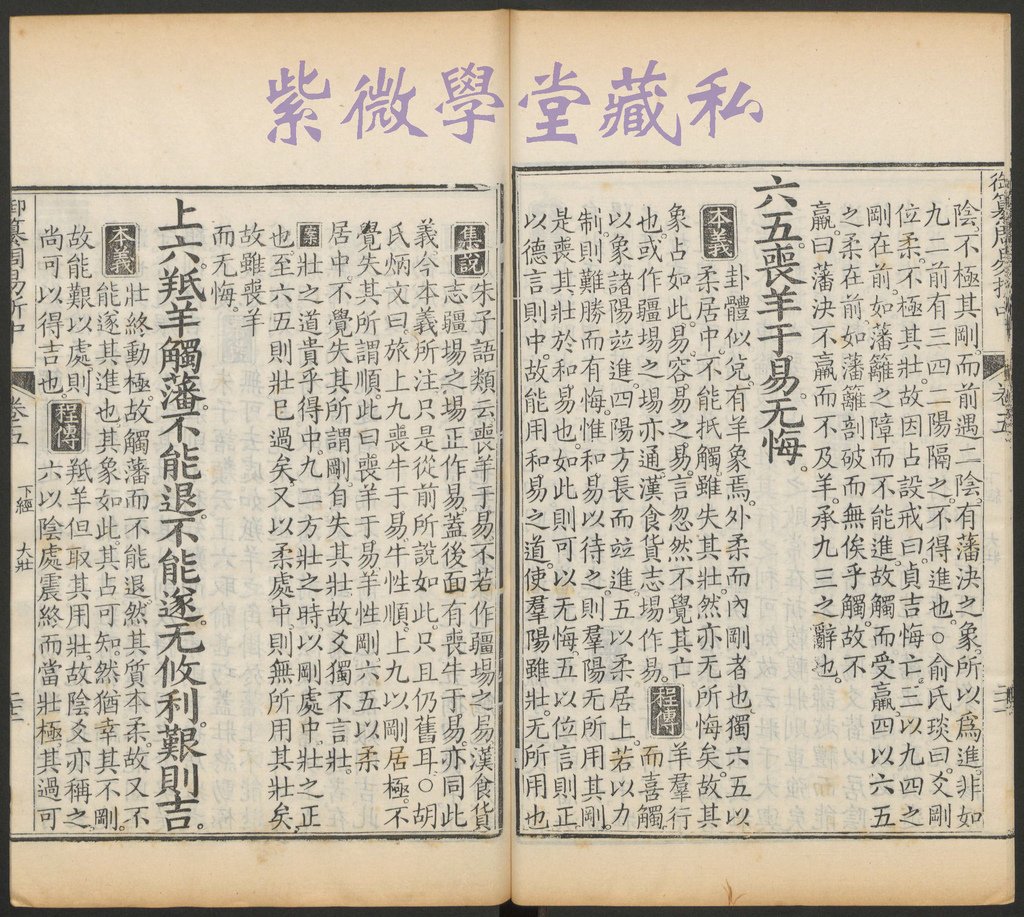 紫微學堂藏私
御纂周易折中
卷五
陰。不極其剛。而前遇二陰。有藩決之象。所以為進。非如
九二前有三四二陽隔之。不得進也。○俞氏琰曰。爻剛
位柔。不極其壯。故因占設戒曰。貞吉悔亡。三以九四之
剛在前。如藩籬之障而不能進。故觸而受羸。四以六五
之柔在前。如藩籬剖破而無俟乎觸。故不
羸。曰藩決不羸。而不及羊。承九三之辭也。
六五喪羊于易无悔。
本義
卦體似兌。有羊象焉。外柔而內剛者也。獨六五以
柔居中。不能抵觸。雖失其壯。然亦无所悔矣。故其
象占如此。易。容易之易。言忽然不覺其亡
也。或作疆埸之埸。亦通。漢食貨志埸作易。
程傳
羊羣行
而喜觸。
以象諸陽竝進。四陽方長而竝進。五以柔居上。若以力
制則難勝而有悔。惟和易以待之。則羣陽无所用其剛。
是喪其壯於和易也。如此則可以无悔。五以位言則正。
以德言則中。故能用和易之道。使羣陽雖壯。无所用也
集說
朱子語類云。喪羊于易。不若作疆埸之易。漢食貨
志疆埸之埸。正作易。蓋後面有喪牛于易。亦同此
義。今本義所注。只是從前所說如此。只且仍舊耳。○胡
氏炳文曰。旅上九喪牛于易。牛性順。上九以剛居極。不
覺失其所謂順。此曰喪羊于易。羊性剛。六五以柔
居中。不覺失其所謂剛。自失其壯。故爻獨不言壯。
案
壯之道貴乎得中。九二方壯之時。以剛處中。壯之正
也。至六五則壯已過矣。又以柔處中。則無所用其壯矣。
故雖喪羊
而无悔。
上六羝羊觸藩。不能退。不能遂。无攸利。艱則吉。
本義
壯終動極。故觸藩而不能退。然其質本柔。故又不
能遂其進也。其象如此。其占可知。然猶幸其不剛。
故能艱以處。則
尚可以得吉也。
程傳
羝羊但取其用壯。故陰爻亦稱之。
六以陰處震終而當壯極。其過可
御纂周易折中
卷五
下經
大壯